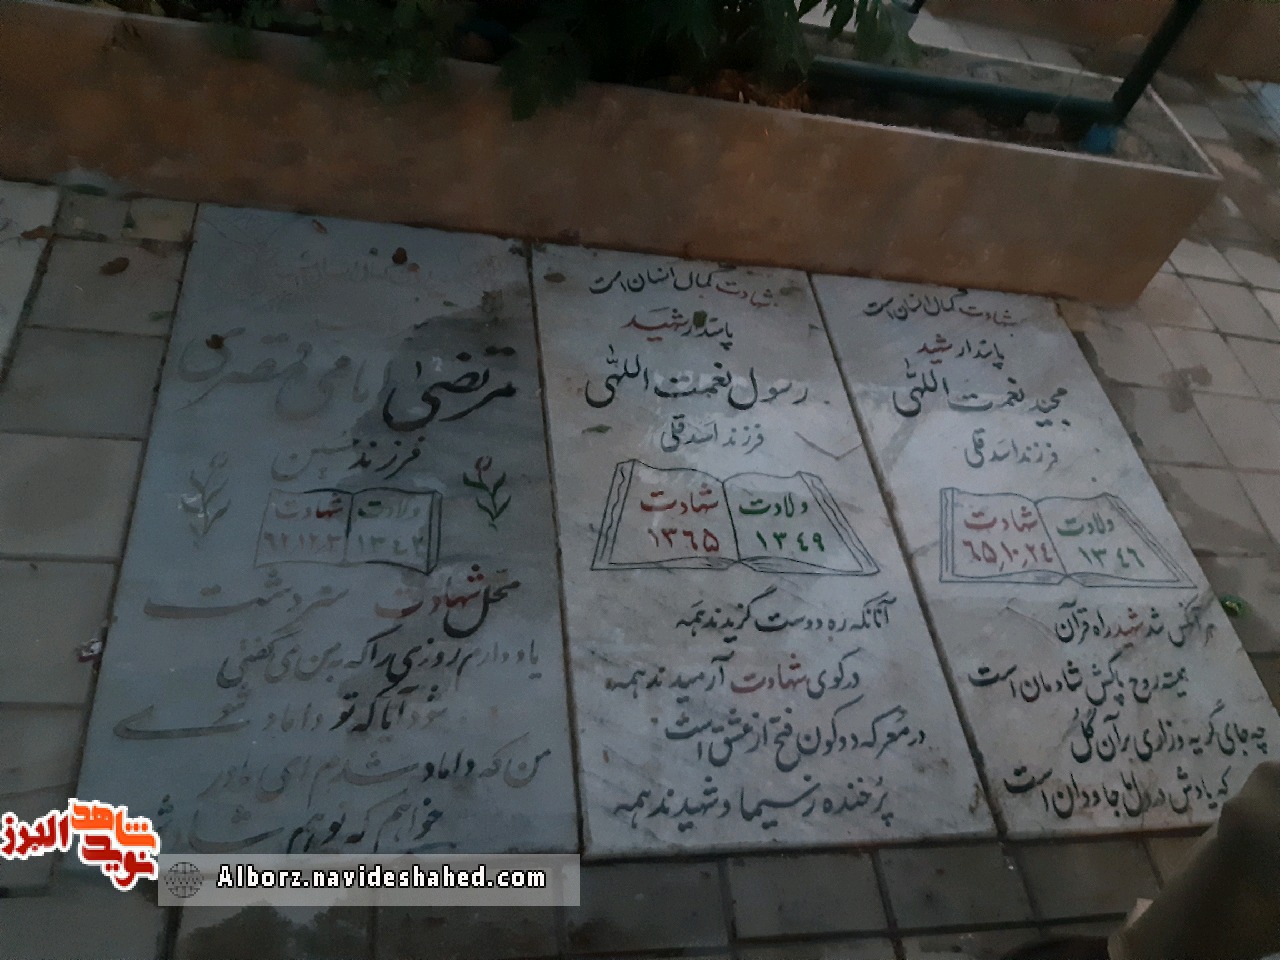 شهادت کمال انسان است
پاسدار شهید
مجید نعمت اللهی
فرزند اسدقلی
ولادت
۱۳۴۶
شهادت
۶۵,۱۰,۲۴
هر آنکس شد شهید راه قرآن
همیشه روح پاکش شادمان است
چه جای گریه و زاری بر آن گل
که یادش در دل ما جاودان است
شهادت کمال انسان است
پاسدار شهید
رسول نعمت اللهی
فرزند اسدقلی
ولادت
۱۳۴۹
شهادت
۱۳۶۵
آنانکه ره دوست گزیدند همه
در کوی شهادت آرمیدند همه
در معرکه دو کون فتح از عشق است
پر خنده ز سیما و شهیدند همه
مرتضی
فرزند حسن
ولادت
۱۳۴۲
شهادت
محل شهادت سردشت
یاد دارم روزی را که به من می گفتی
شود آیا که تو داماد شوی
من که داماد شدم ای مادر
خواهم که تو هم شاد
شاهد
نوید
البرز
Alborz.navideshahed.com